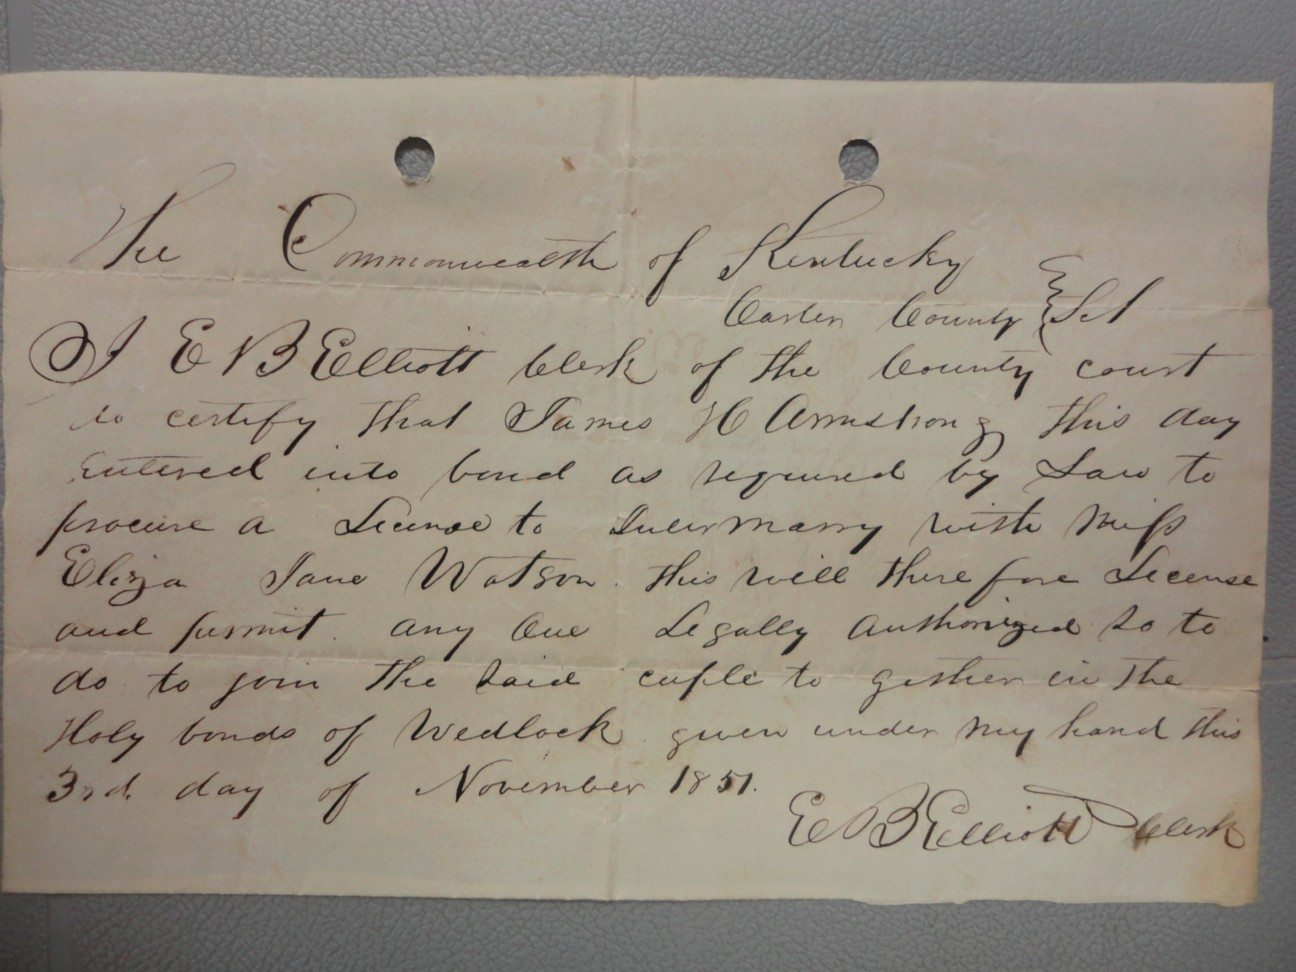 The Commonwealth of Kentucky
Carter County } Sct
I E B Elliott Clerk of the County court
do certify that James H Armstrong this day
Entered into bond as required by Law to
procure a License to Intermarry with Miss
Eliza Jane Watson this will there fore License
and permit any One Legally Authorized So to
do to join the Said cuple to gether in the
Holy bonds of Wedlock given under my hand this
3rd day of November 1851.
E B Elliott Clerk